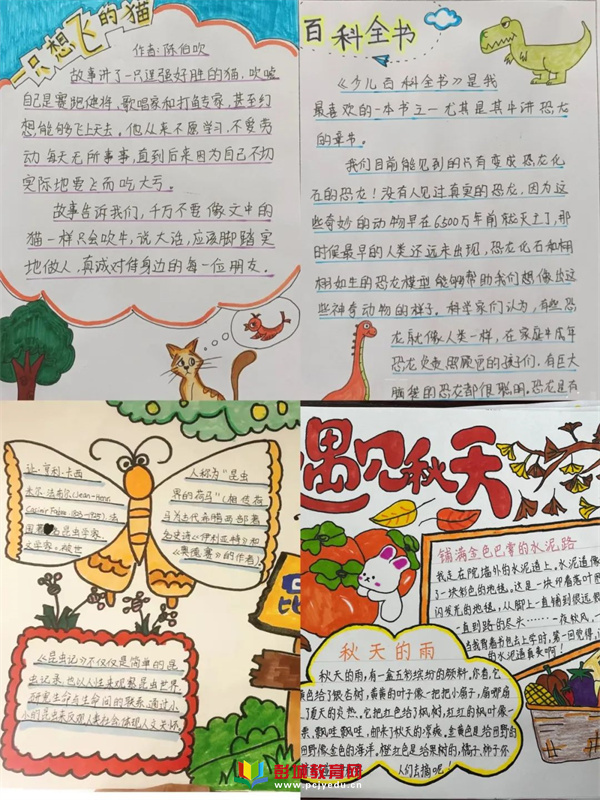 一只想飞的猫
作者:陈伯吹
故事讲了一只逞强好胜的猫,吹嘘
自己是赛跑健将,歌唱家和打鱼专家,甚至幻
想能够飞上天去。他从来不愿学习,不爱劳
动每天无所事事,直到后来因为自己不切
实际地要飞而吃大亏。
故事告诉我们,千万不要像文中的
猫一样只会吹牛,说大话,应该脚踏实
地做人,真诚对待身边的每一位朋友。
百科全书
《少儿百科全书》是我
最喜欢的一本书之一尤其是其中讲恐龙
的章节。
我们目前能见到的只有变成恐龙化
石的恐龙!没有人见过真实的恐龙,因为这
些奇妙的动物早在6500万年前就灭亡了,那
时候最早的人类还远未出现,恐龙化石和栩
栩如生的恐龙模型能够帮助我们想像出这
些神奇动物的样子。科学家们认为,有些恐
龙就像人类一样,在家庭中成年
恐龙负责照顾它的孩子们,有巨大
脑袋的恐龙都很聪明。恐龙是有
让·亨利·卡西
米尔·法布尔(Jean-Henri
Casimir Fabre
国著名昆虫学家
文学家。被世
人称为"昆虫
界的荷马"(相传荷
马为古代希腊两部著
名史诗《伊利亚特》和
《奥德赛》的作者)
《昆虫记》不仅仅是简单的昆
虫记录,也以人性来观察昆虫世界,
研究生命与生命间的联系,通过小
小的昆虫来反观人类社会体现人文关怀。
遇见秋天
铺满金色巴掌的水泥路
我走在院墙外的水泥道上。水泥道像
了一块彩色的地毯。这是一块印着落叶图
闪发光的地毯,从脚上一直铺到很远
一直到路的尽头
当我背着书包去上学时,第一回觉得,
的水泥道真美啊!
秋天的雨
秋天的雨,有一盒五彩缤纷的颜料。你看,它
黄色给了银杏树,黄黄的叶子像一把把小扇子,扇哪扇
了夏天的炎热。它把红色给了枫树,红红的枫叶像一
票,飘哇飘哇,邮来了秋天的凉爽。金黄色是给田野的
田野像金色的海洋。橙红色是给果树的,橘子、柿子你
人们去摘呢!
彭城教育网
www.pcjyedu.cn